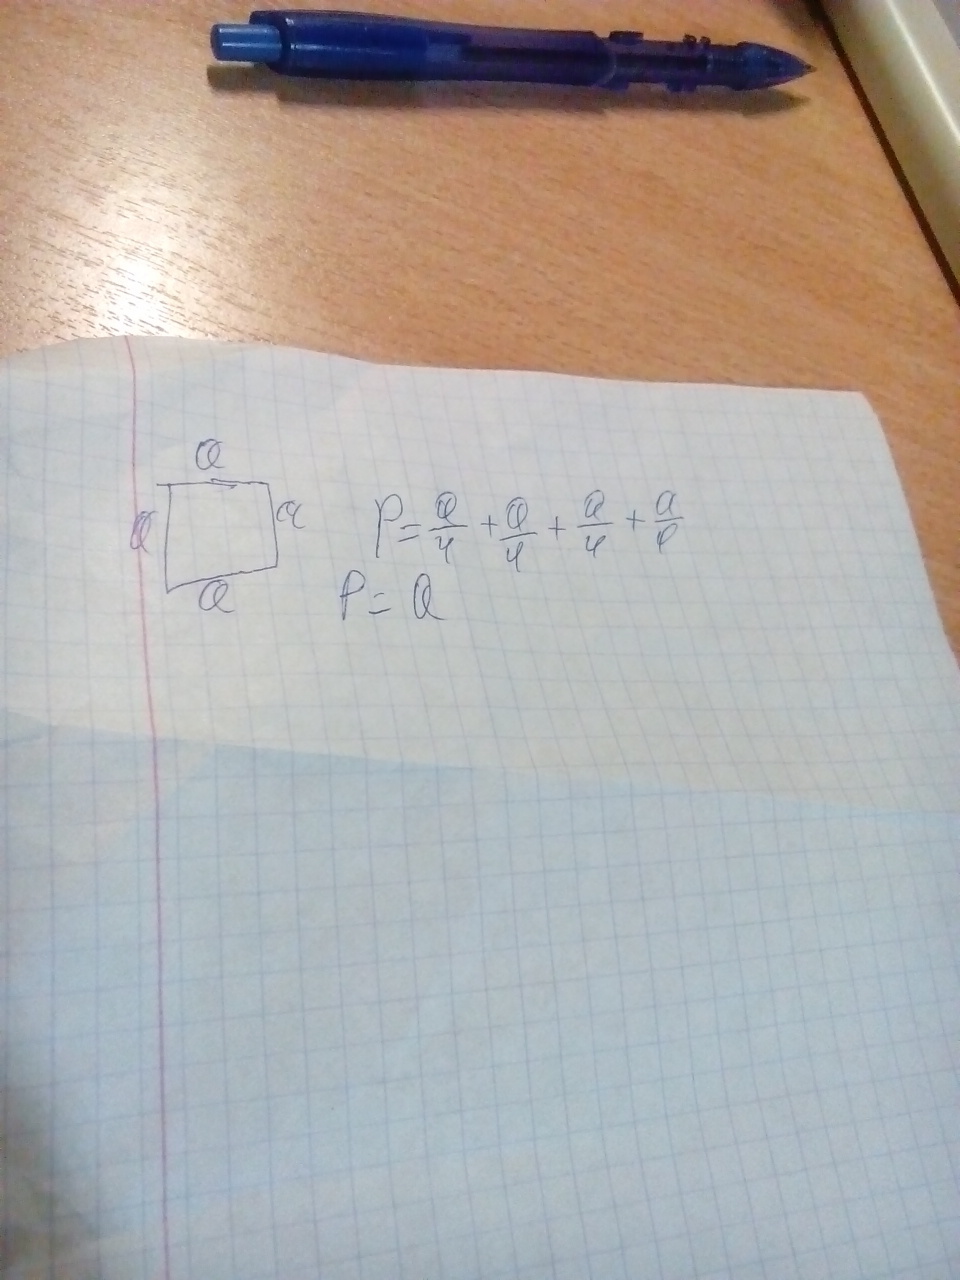 a
a
a
a
P = a/4 + a/4 + a/4 + a/4
P = a